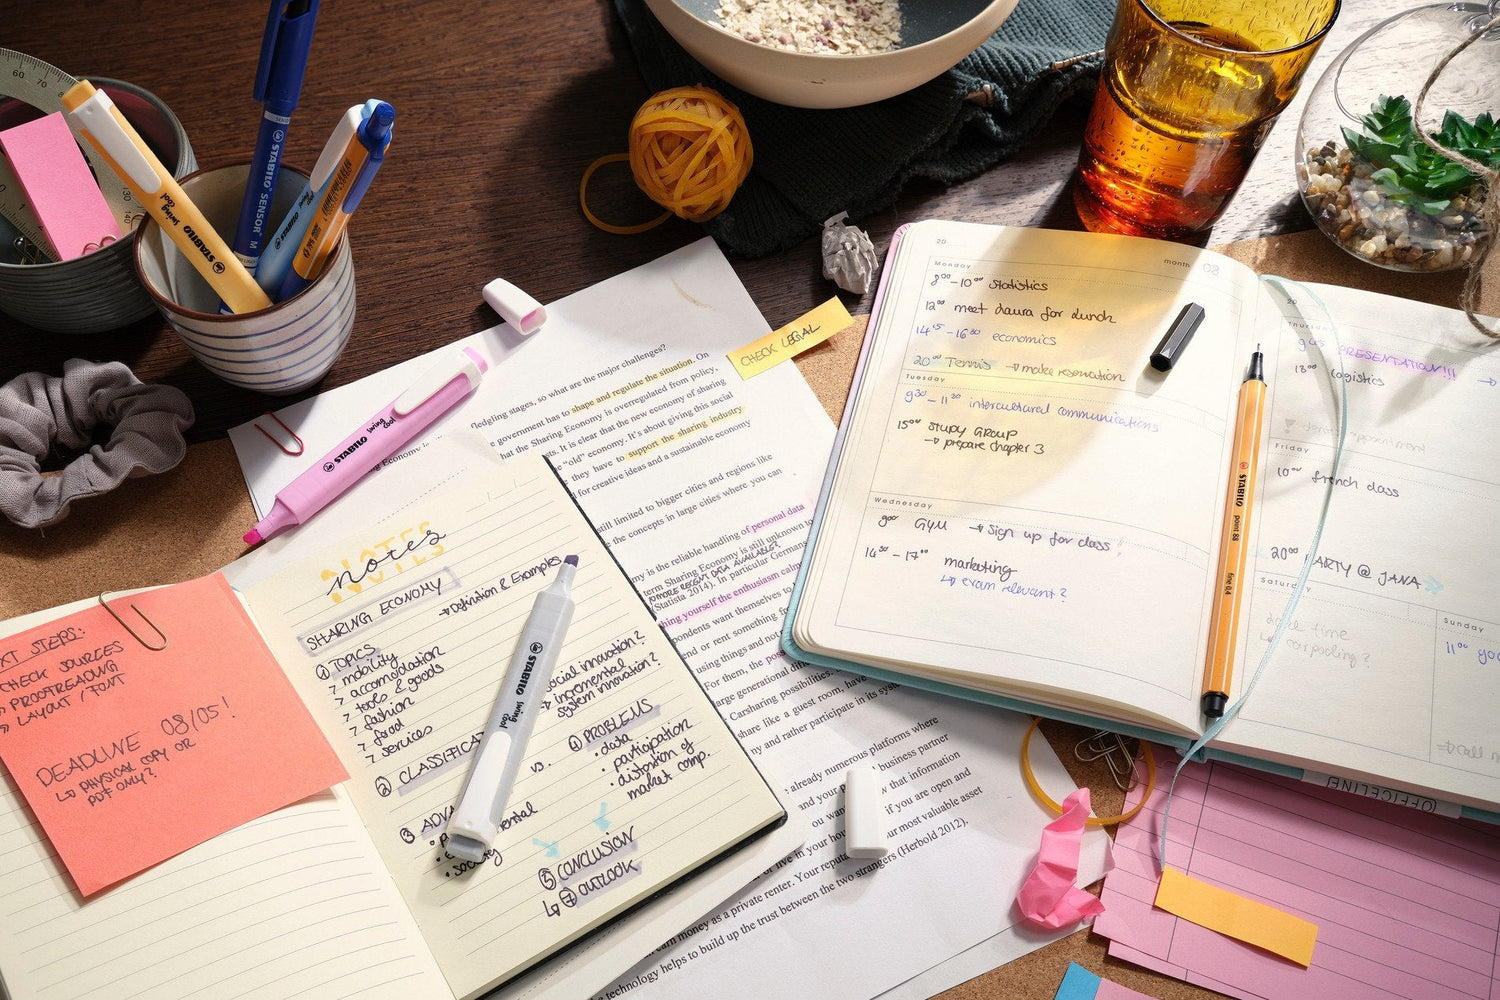 60
70
130
140
0
STABILO
swing
cool
STABILO SENSOR M
STABILO
STABILO
swing
cool
CHECK LEGAL
fledgling stages, so what are the major challenges?
government has to shape and regulate the situation. On
hat the Sharing Economy is overregulated from policy,
ts. It is clear that the new economy of sharing
e "old" economy. It's about giving this social
they have to support the sharing industry
for creative ideas and a sustainable economy
still limited to bigger cities and regions like
the concepts in large cities where you can
my is the reliable handling of personal data
term Sharing Economy is still unknown to
MORE RECENT DATA AVAILABLE?
(Statista 2014). In particular Germans
hing yourself the enthusiasm calm
pondents want themselves to
end or rent something fr
using things and not
For them, the pos
arge generational
Carsharing possibilities.
share like a guest room, have
ny and rather participate in its syste
already numerous platforms where
and your business partner
ou wan that information
in your hou if you are open and
or live in your reputa our most valuable asset
earn money as a private renter. Your between the two strangers (Herbold 2012).
e technology helps to build up the trust
notes
NOTES
SHARING ECONOMY
→ Definition & Examples
① TOPICS
7 mobility
7 accomodation
7 tools & goods
7 fashion
7 food
7 services
② CLASSIFICAT
social innovation?
incremental
system innovation?
vs.
③ ADVA
ental
society
④ PROBLEMS
• data
• participation
• distortion of
market comp.
⑤ CONCLUSION
↳ ⑦ OUTLOOK
STABILO
swing
cool
XT STEPS:
CHECK SOURCES
PROOFREADING
LAYOUT / FONT
DEADLINE 08/05!
↳ PHYSICAL COPY OR
PDF ONLY?
20
month 03
Monday
9⁰⁰-10⁰⁰ Statistics
12⁰⁰ meet Laura for Lunch
14¹⁵-16³⁰ economics
20⁰⁰ Tennis → make reservation
Tuesday
9³⁰-11³⁰ intercultural communications
15⁰⁰ STUDY GROUP
→ prepare chapter 3
Wednesday
9⁰⁰ GYM → sign up for class!
14³⁰-17⁰⁰ marketing
↳ exam relevant?
STABILO point 88 fine 0,4
20
Thursday
PRESENTATION!!!
13⁰⁰ logistics
Friday
10⁰⁰ french class
20⁰⁰ PARTY @ JANA
Saturday
time
carpooling?
Sunday
11⁰⁰
OFFICELINE